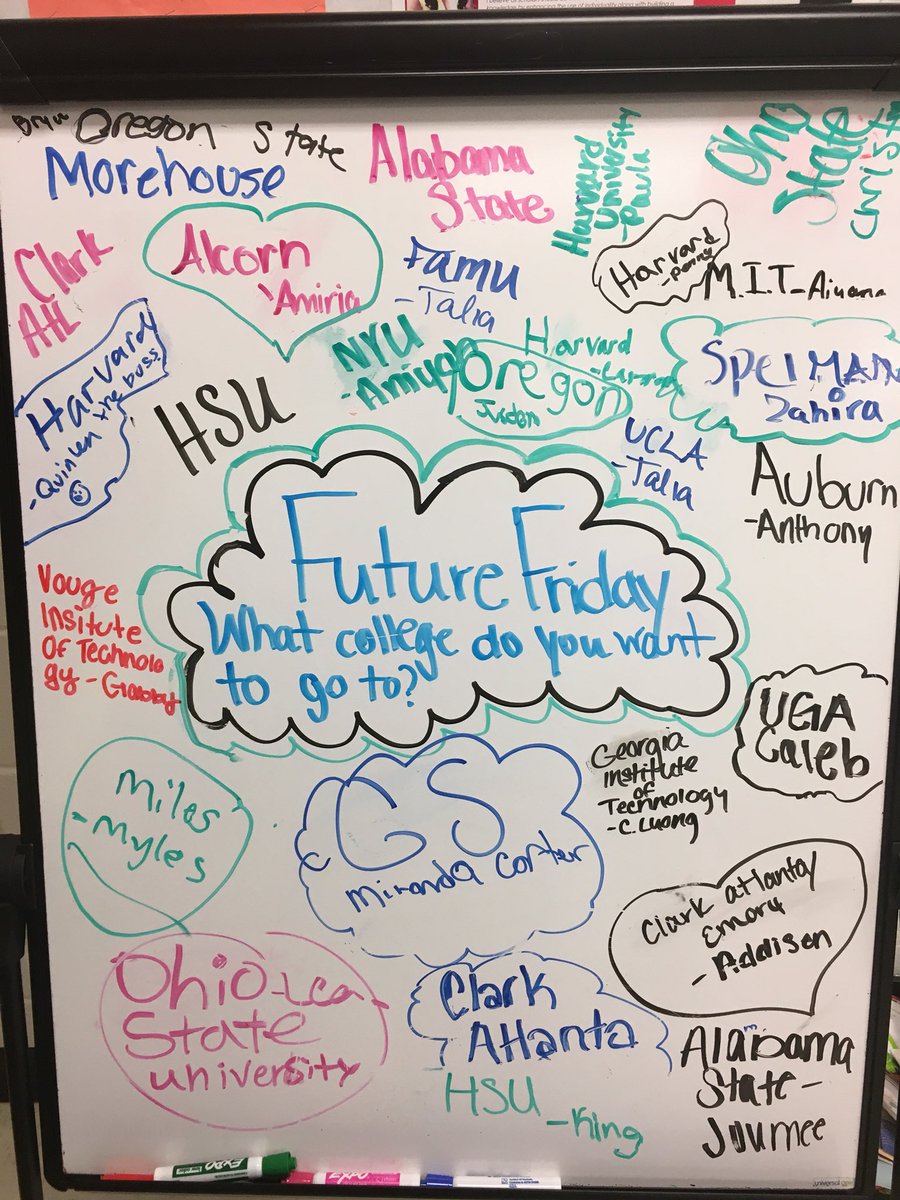 Oregon State
Morehouse
Alabama
State
Harvard
University
-Paula
Oho
State
Clark
Atl
Alcorn
Amiria
FAMU
-Talia
Harvard
-penny
M.I.T-
Harvard
-Quinlen the boss
HSU
NYU
Harvard
Oregon
SpelMAN
Zahira
UCLA
-Talia
Auburn
-Anthony
Future Friday
What college do you want
to go to?
Vouge
Insitute
Of Technolo
gy - Gabby
UGA
Caleb
Georgia
institute
of
Technology
-C. Luong
Miles
-Myles
GS
Miranda Carter
Clark atlanta/
Emory
- Addisen
Ohio
State
university
Clark
Atlanta
HSU
-King
Alabama
State-
Joumee
EXPO
EXPO